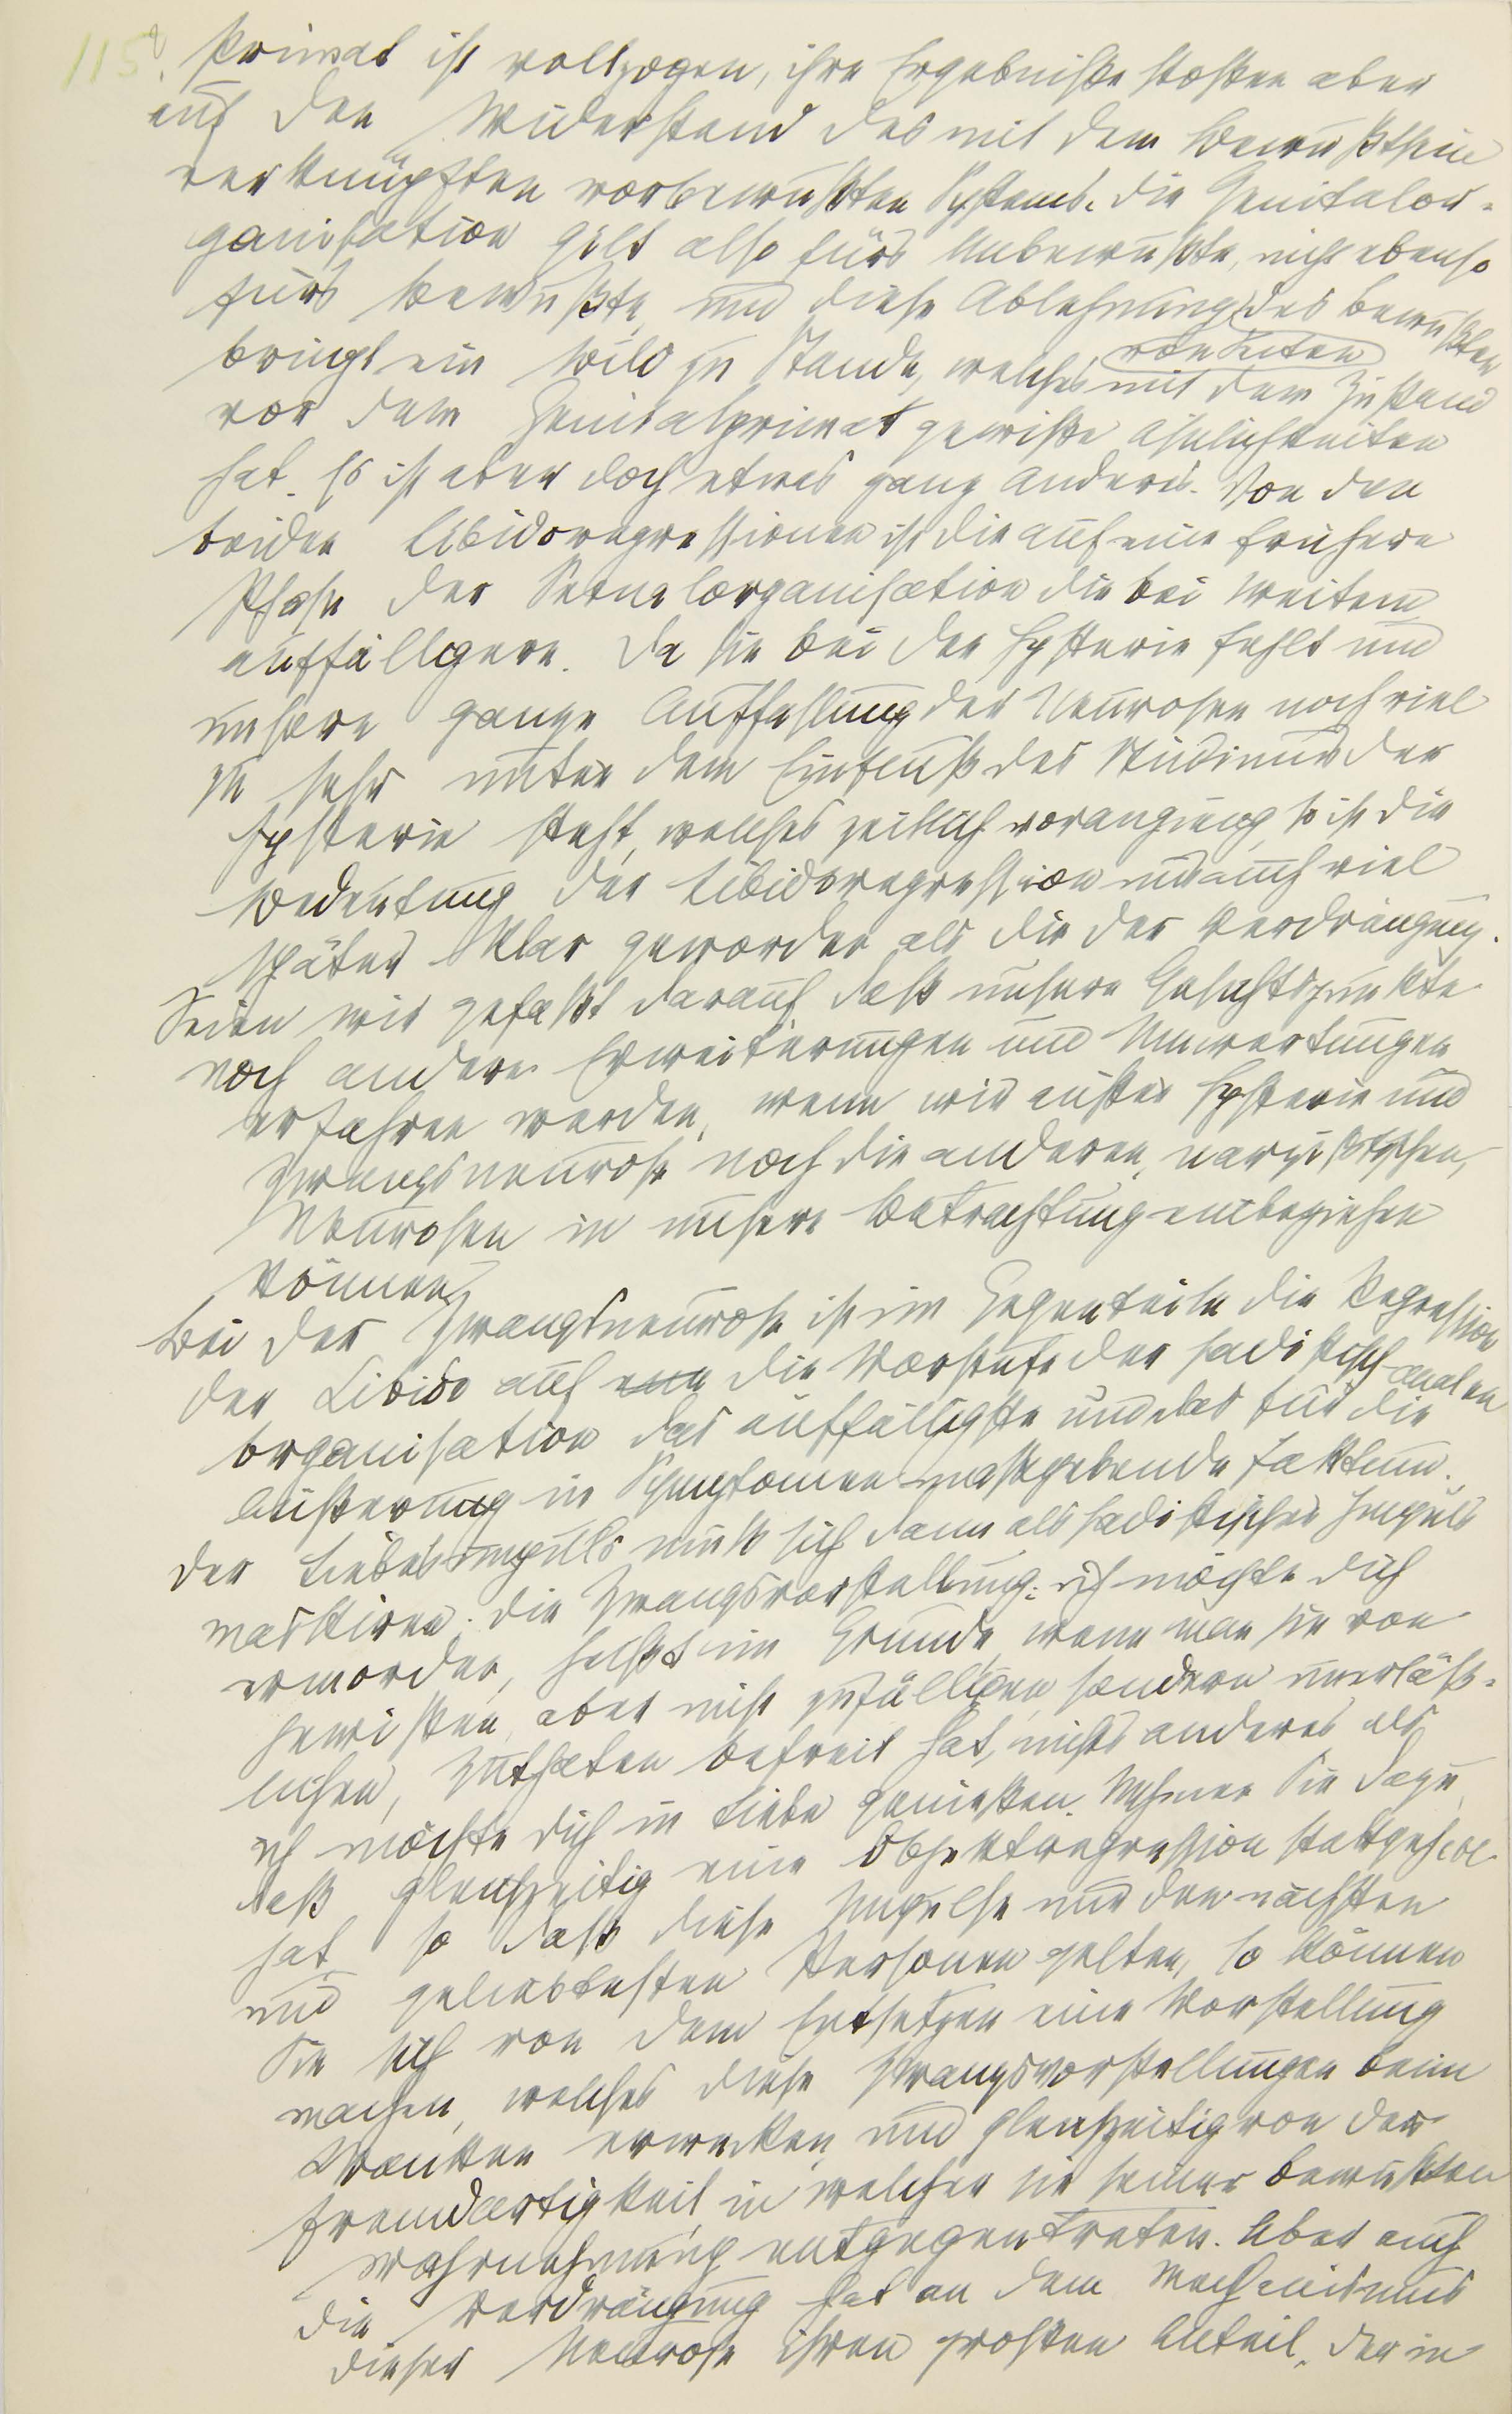 115
Primat ist vollzogen, ihre Ergebniße stoßen aber
auf den Widerstand des mit dem Bewußtsein
verknüpften vorbewußten Systems. Die Genitalor-
ganisation gilt also fürs Unbewußte, nicht ebenso
fürs Bewußte, und diese Ablehnung des Bewußten
von Seiten
bringt ein Bild zu Stande, welches mit dem Zustand
vor dem Genitalprimat gewiße Ähnlichkeiten
hat. Es ist aber doch etwas ganz anderes. Von den
beiden Libidoregressionen ist die auf eine frühere
Phase der Sexualorganisation die bei Weitem
auffälligere. Da sie bei der Hysterie fehlt und
unsere ganze Auffassung der Neurosen noch viel
zu sehr unter dem Einfluß des Studiums der
Hysterie steht, welches zeitlich vorangieng, so ist die
Bedeutung der Libidoregression uns auch viel
später klar geworden als die der Verdrängung.
Seien wir gefaßt darauf, daß unsere Gesichtspunkte
noch andere Erweiterungen und Umwertungen
erfahren werden, wenn wir außer Hysterie und
Zwangsneurose noch die anderen, narzißtischen,
Neurosen in unsere Betrachtung einbeziehen
können.
Bei der Zwangsneurose ist im Gegenteile die Regression
der Libido auf die Vorstufe der sadistisch-analen
Organisation das auffälligste und das für die
Äußerung in Symptomen maßgebende Faktum.
Der Liebesimpuls muß sich dann als sadistischer Impuls
maskiren. Die Zwangsvorstellung: ich möchte dich
ermorden, heißt im Grunde, wenn man sie von
gewißen, aber nicht zufälligen sondern unerläß-
lichen, Zuthaten befreit hat, nichts anderes als:
ich möchte dich in Liebe genießen. Nehmen Sie dazu,
daß gleichzeitig eine Objektregression stattgehabt
hat, so daß diese Impulse nur den nächsten
und geliebtesten Personen gelten, so können
Sie sich von dem Entsetzen eine Vorstellung
machen, welches diese Zwangsvorstellungen beim
Kranken erwecken, und gleichzeitig von der
Fremdartigkeit, in welcher sie seiner bewußten
Wahrnehmung entgegentreten. Aber auch
die Verdrängung hat an dem Mechanismus
dieser Neurose ihren großen Anteil, der in